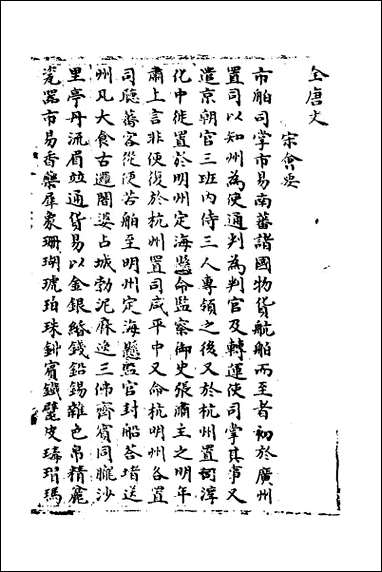 全唐文
宋會要
市舶司掌市易南蕃諸國物貨航舶而至者初於廣州
置司以知州為使通判為判官及轉運使司掌其事又
遣京朝官三班内侍三人專領之後又於杭州置司淳
化中徙置於明州定海縣命監察御史張肅主之明年
肅上言非便復於杭州置司咸平中又命杭明州各置
司聽蕃客從便若舶至明州定海縣監官封船莟堵送
州凡大食古邏闍婆占城勃泥麻逸三佛齊賓同朧沙
里亭丹流眉竝通貨易以金銀緡錢鉛錫雜色帛精麄
瓷器市易香藥犀象珊瑚琥珀珠釧賓鐵鼊皮瑇瑁瑪